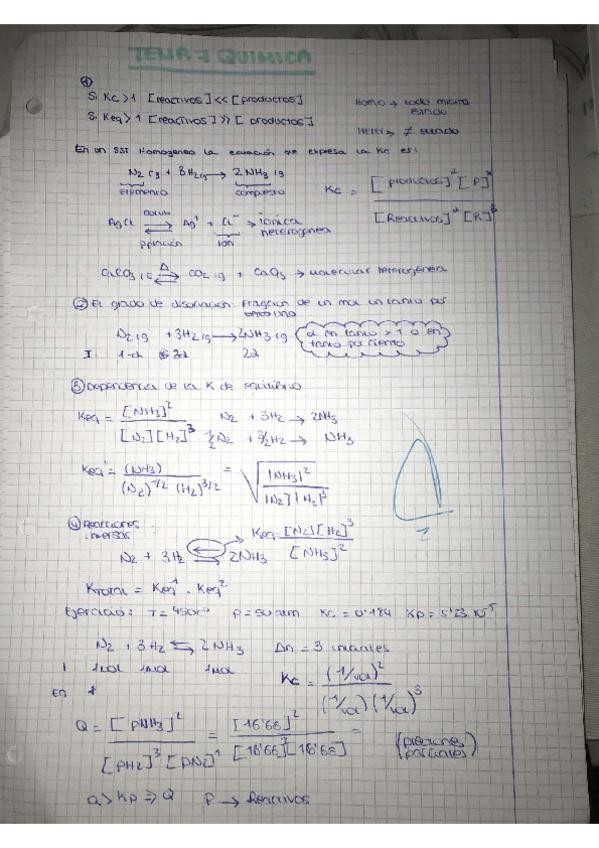 TEMA 7 QUIMICA
①
Si Kc > 1 [reactivos] << [productos]
Si Keq > 1 [reactivos] >> [productos]
Homo → todo mismo estado
Hetero → ≠ estado
En un SST Homogeneo la ecuación que expresa la Kc es:
N2 (g) + 3H2 (g) → 2NH3 (g)
elemento compuesto
Kc = [productos]^2 [P]^x / [Reactivos]^2 [R]^3
AgCl ⇌ Ag+ + Cl- → iónica heterogenea
ion
CaCO3 (s) ⇌ CO2 (g) + CaO3 → molecular heterogenea
Δ
② El grado de disociación: Fragcion de un mol un tanto por uno
N2 (g) + 3H2 (g) → 2NH3 (g)
I 1-α 3α 2α
α en tanto > 1 o en tanto por ciento
③ Dependencia de la K de equilibrio
Keq = [NH3]^2 / [N2][H2]^3
N2 + 3H2 → 2NH3
1/2 N2 + 3/2 H2 → NH3
Keq' = (NH3) / (N2)^-1/2 (H2)^3/2 = √ |NH3|^2 / |N2| |H2|^3
④ Reacciones inversas
N2 + 3H2 ⇌ 2NH3
Keq = [N2][H2]^3 / [NH3]^2
KTotal = Keq^1 · Keq^2
Ejercicio: T = 450 P = 50 atm Kc = 0'184 Kp = 5'23·10^-5
N2 + 3H2 ⇌ 2NH3 Δn = 3 iniciales
I 1mol 1mol 1mol
En
Kc = (1/vol)^2 / (1/vol)(1/vol)^3
Q = [pNH3]^2 / [pH2]^3 [pN2]^1 = [16'66]^2 / [16'66]^3 [16'66] =
(presiones parciales)
Q > Kp ⇒ Q P → Reactivos